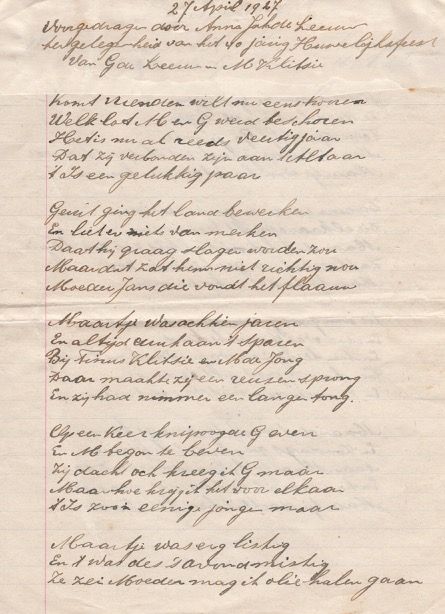 27 April 1947
Voorgedragen door Anna Jak de Leeuw
ter gelegenheid van het 40 jarig Huwelijksfeest
Van G de Leeuw en M Klitsie
Komt vrienden wilt nu eens hooren
Welk lot M en G werd beschoren
Het is nu al reeds veertig jaar
Dat zij verbonden zijn aan 't Altaar
t Is een gelukkig paar
Gerrit ging het land bewerken
En liet er niets van merken
Dat hij graag slager worden zou
Maar dat zat hem niet richtig nou
Moeder Jans die vondt het flauw
Maartje was achtien jaren
En altijd aan haar 't sparen
Bij Tinus Klitsie en M de Jong
Daar maakte zij een reuzen sprong
En zij had nimmer een langer tong.
Op een keer knipoogde G even
En M begon te beven
Zij dacht och kreeg ik G maar
Maar hoe krijg ik het voor elkaar
t Is zoo'n eenige jongen maar
Maartje was erg listig
En 't was des 's avonds mistig
Ze zei Moeder mag ik olie halen gaan